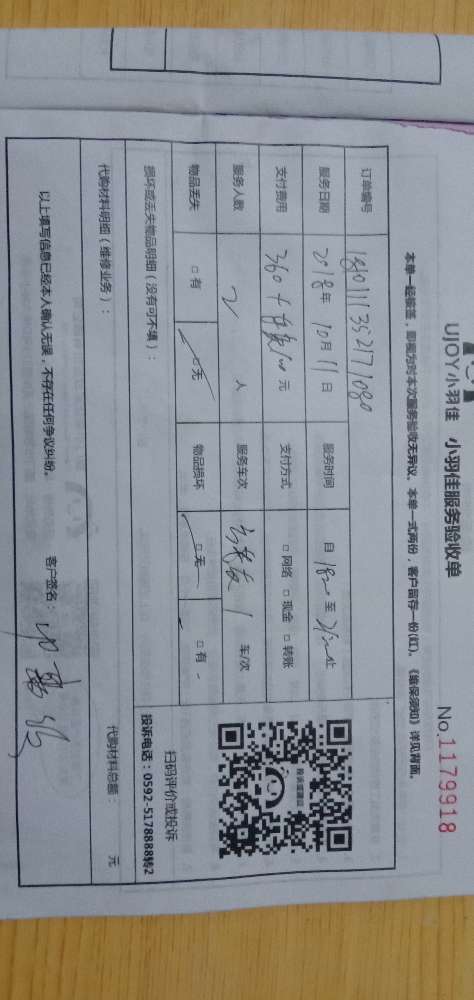 UJOY小羽佳 小羽佳服务验收单
No.1179918
本单一经核签，即视为对本次服务验收无异议。本单一式两份，客户留存一份(红)。《维保须知》详见背面。
订单编号
服务日期 2018年 10月 11日 服务时间 自 至 止
支付费用 360+ 元 支付方式 □网络 □现金 □转账
服务人数 2 人 服务车次 1 车/次
物品丢失 □有 □无 物品损坏 □无 □有
损坏或丢失物品明细（没有可不填）：
扫码评价或投诉
投诉电话：0592-5178888转2
代购材料明细（维修业务）： 代购材料总额： 元
以上填写信息已经本人确认无误，不存在任何争议纠纷。 客户签名：